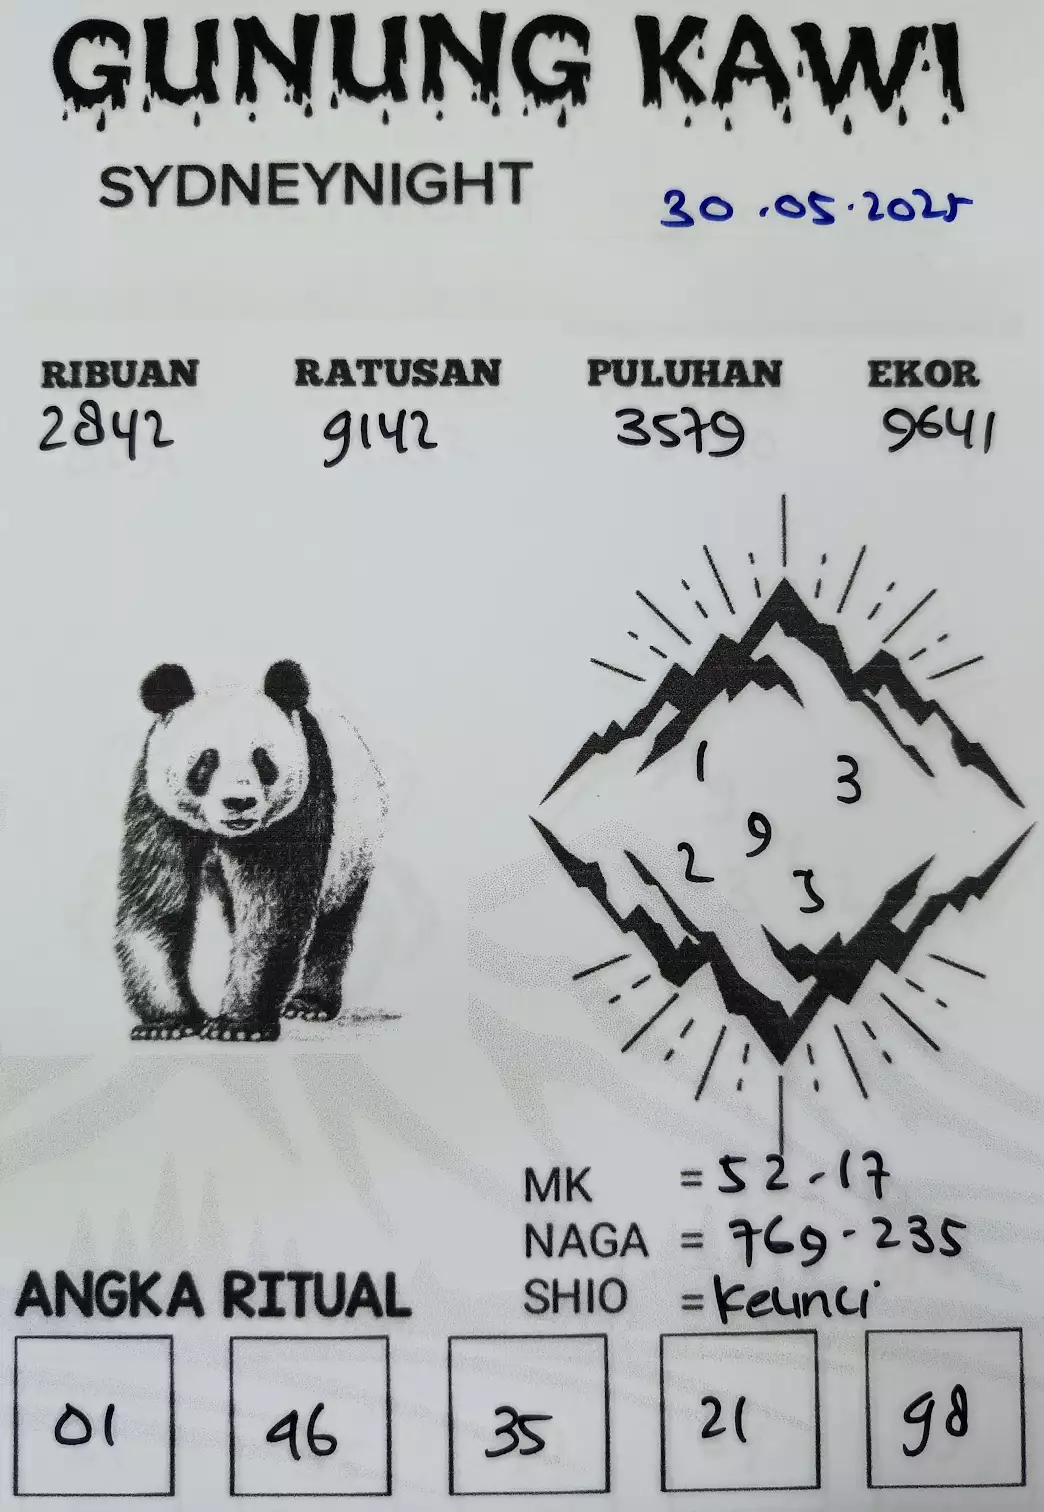 GUNUNG KAWI
SYDNEYNIGHT
30.05.2025
RIBUAN RATUSAN PULUHAN EKOR
2842 9142 3579 9641
1 3
9
2 3
MK = 52-17
NAGA = 769-235
SHIO = Kelinci
ANGKA RITUAL
01 46 35 21 98